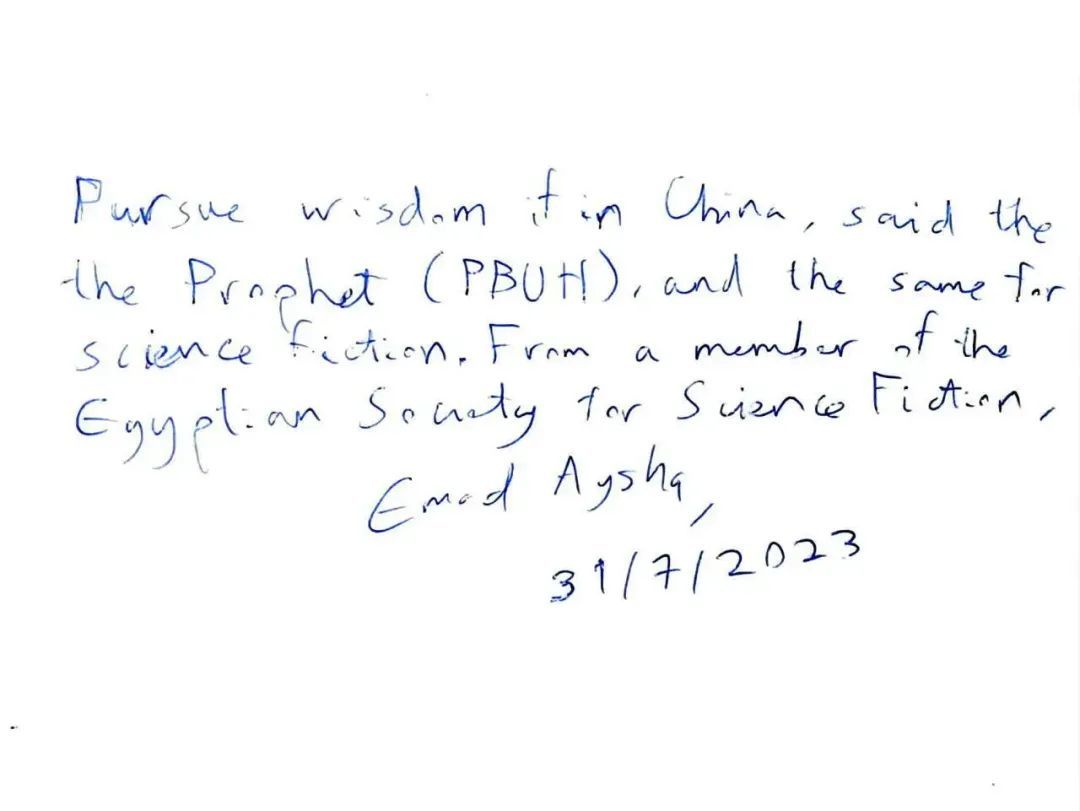 Pursue wisdom if in China, said the
the Prophet (PBUH), and the same for
science fiction. From a member of the
Egyptian Society for Science Fiction,
Emad Aysha,
31/7/2023